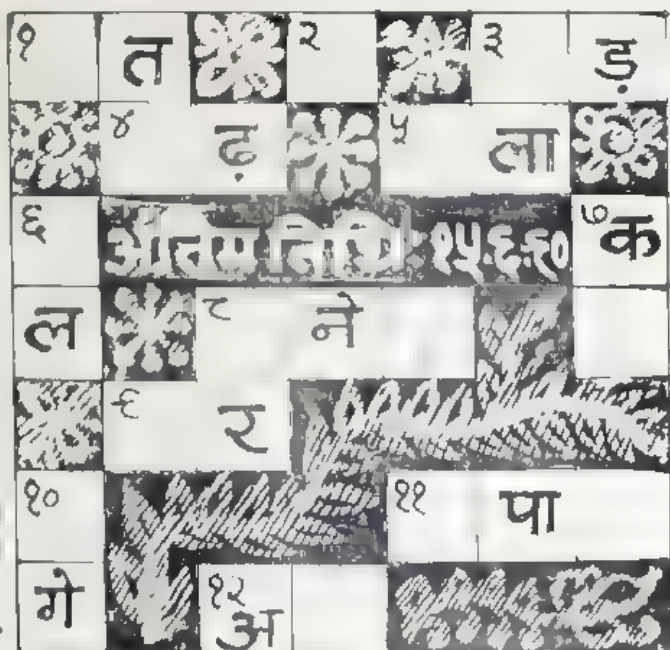 १ त २ ३ ड़
४ ढ़ ५ ला
६ अंतिम तिथि: १५.६.६० ७ क
ल ८ ने
९ र
१० ११ पा
गे १२ अ